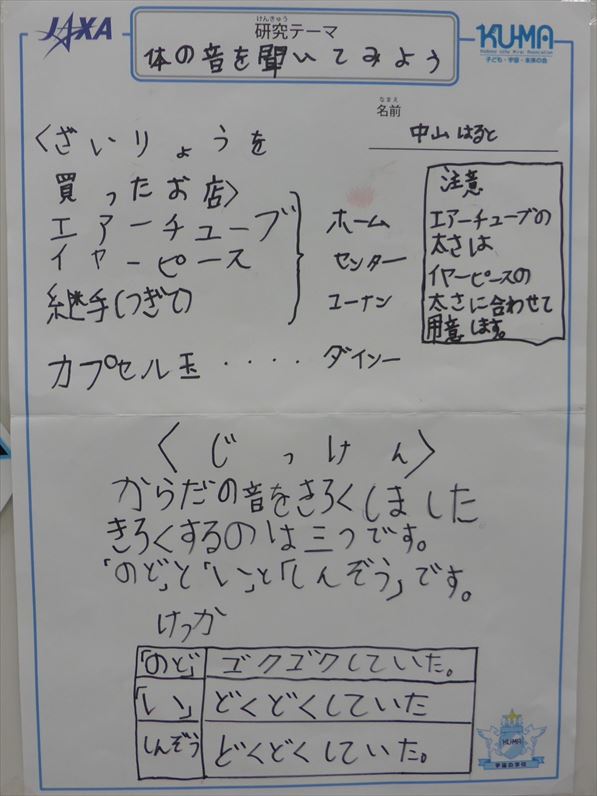 JAXA
けんきゅう
研究テーマ
体の音を聞いてみよう
KU-MA
子ども・宇宙・未来の会
なまえ
名前
中山 はると
〈ざいりょうを
買ったお店〉
エアーチューブ
イヤーピース
継手(つぎて)
ホーム
センター
ユーナン
カプセル玉・・・・ダイソー
注意
エアーチューブの
太さは
イヤーピースの
太さに合わせて
用意します。
〈じっけん〉
からだの音をきろくしました
きろくするのは三つです。
「のど」と「い」と「しんぞう」です。
けっか
「のど」 ゴクゴクしていた。
「い」 どくどくしていた
しんぞう どくどくしていた。
KU-MA
宇宙の学校